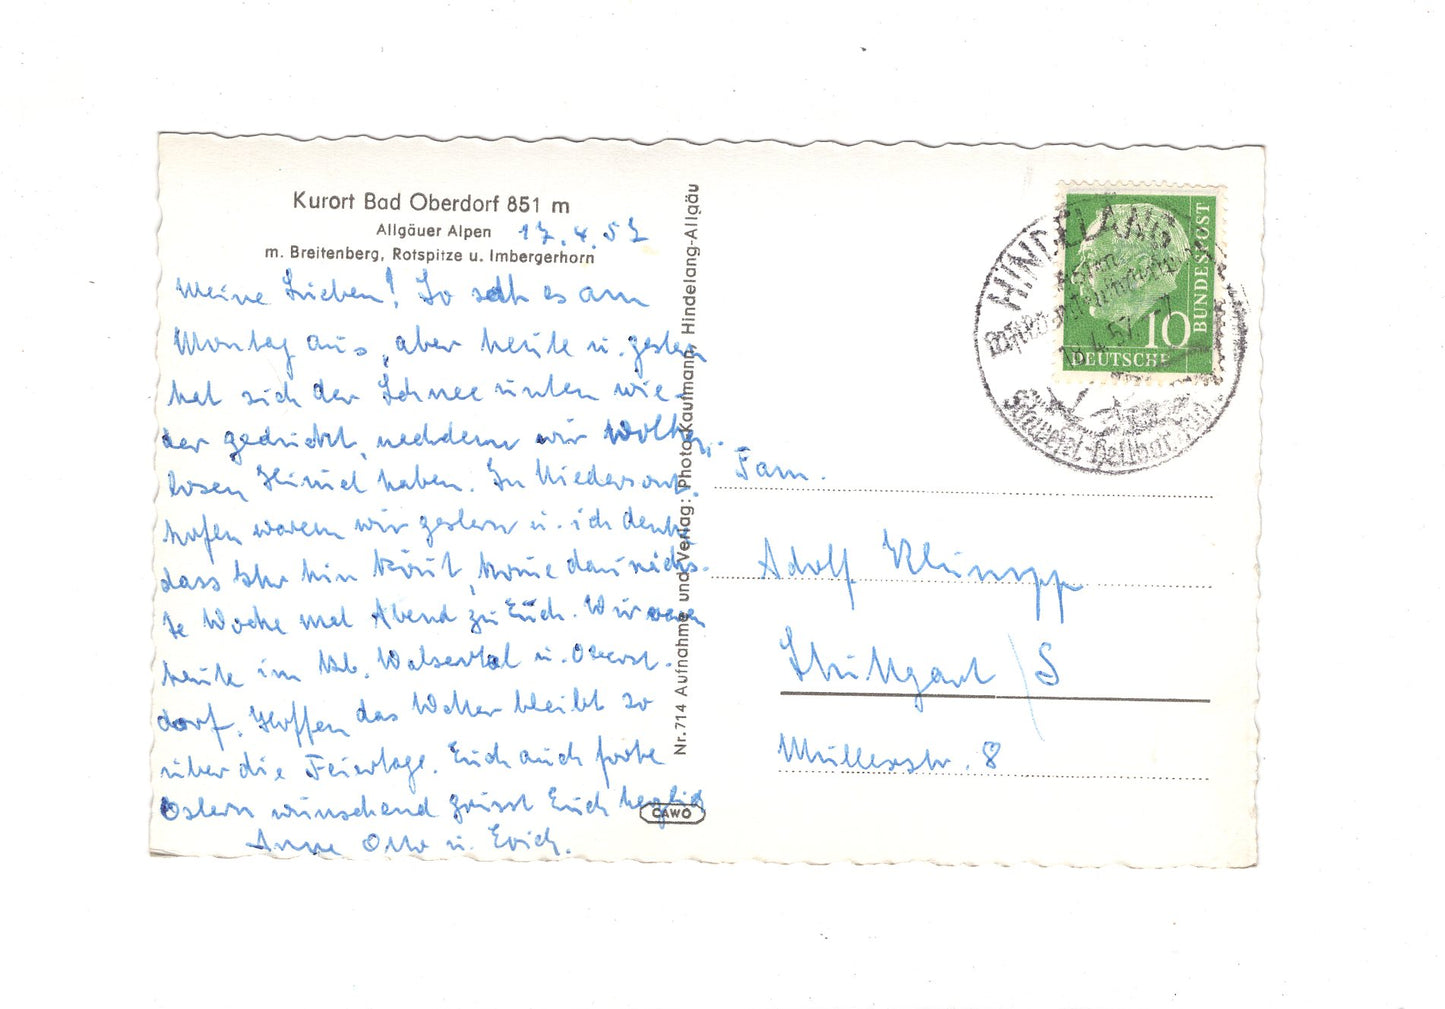 Kurort Bad Oberdorf 851 m
Allgäuer Alpen
m. Breitenberg, Rotspitze u. Imbergerhorn
17.4.57
Meine Lieben! So sah es am
Montag aus, aber heute u. gestern
hat sich der Schnee unten wie-
der gedrückt, nachdem wir Wolken-
losen Himmel haben. In Niedersont-
hofen waren wir gestern u. ich denke
dass Ihr hin könnt, komme dann nächs-
te Woche mal Abend zu Euch. Wir waren
heute im Kl. Walsertal u. Oberst-
dorf. Hoffen das Wetter bleibt so
über die Feiertage. Euch auch frohe
Ostern wünschend grüsst Euch herzlich
Anne Otto u. Erich.
Nr. 714 Aufnahme und Verlag: Photo-Kaufmann, Hindelang-Allgäu
CAWO
HINDELANG
18.4.57
DEUTSCHE
BUNDESPOST
10
Fam.
Adolf Klumpp
Stuttgart / S
Müllerstr. 8